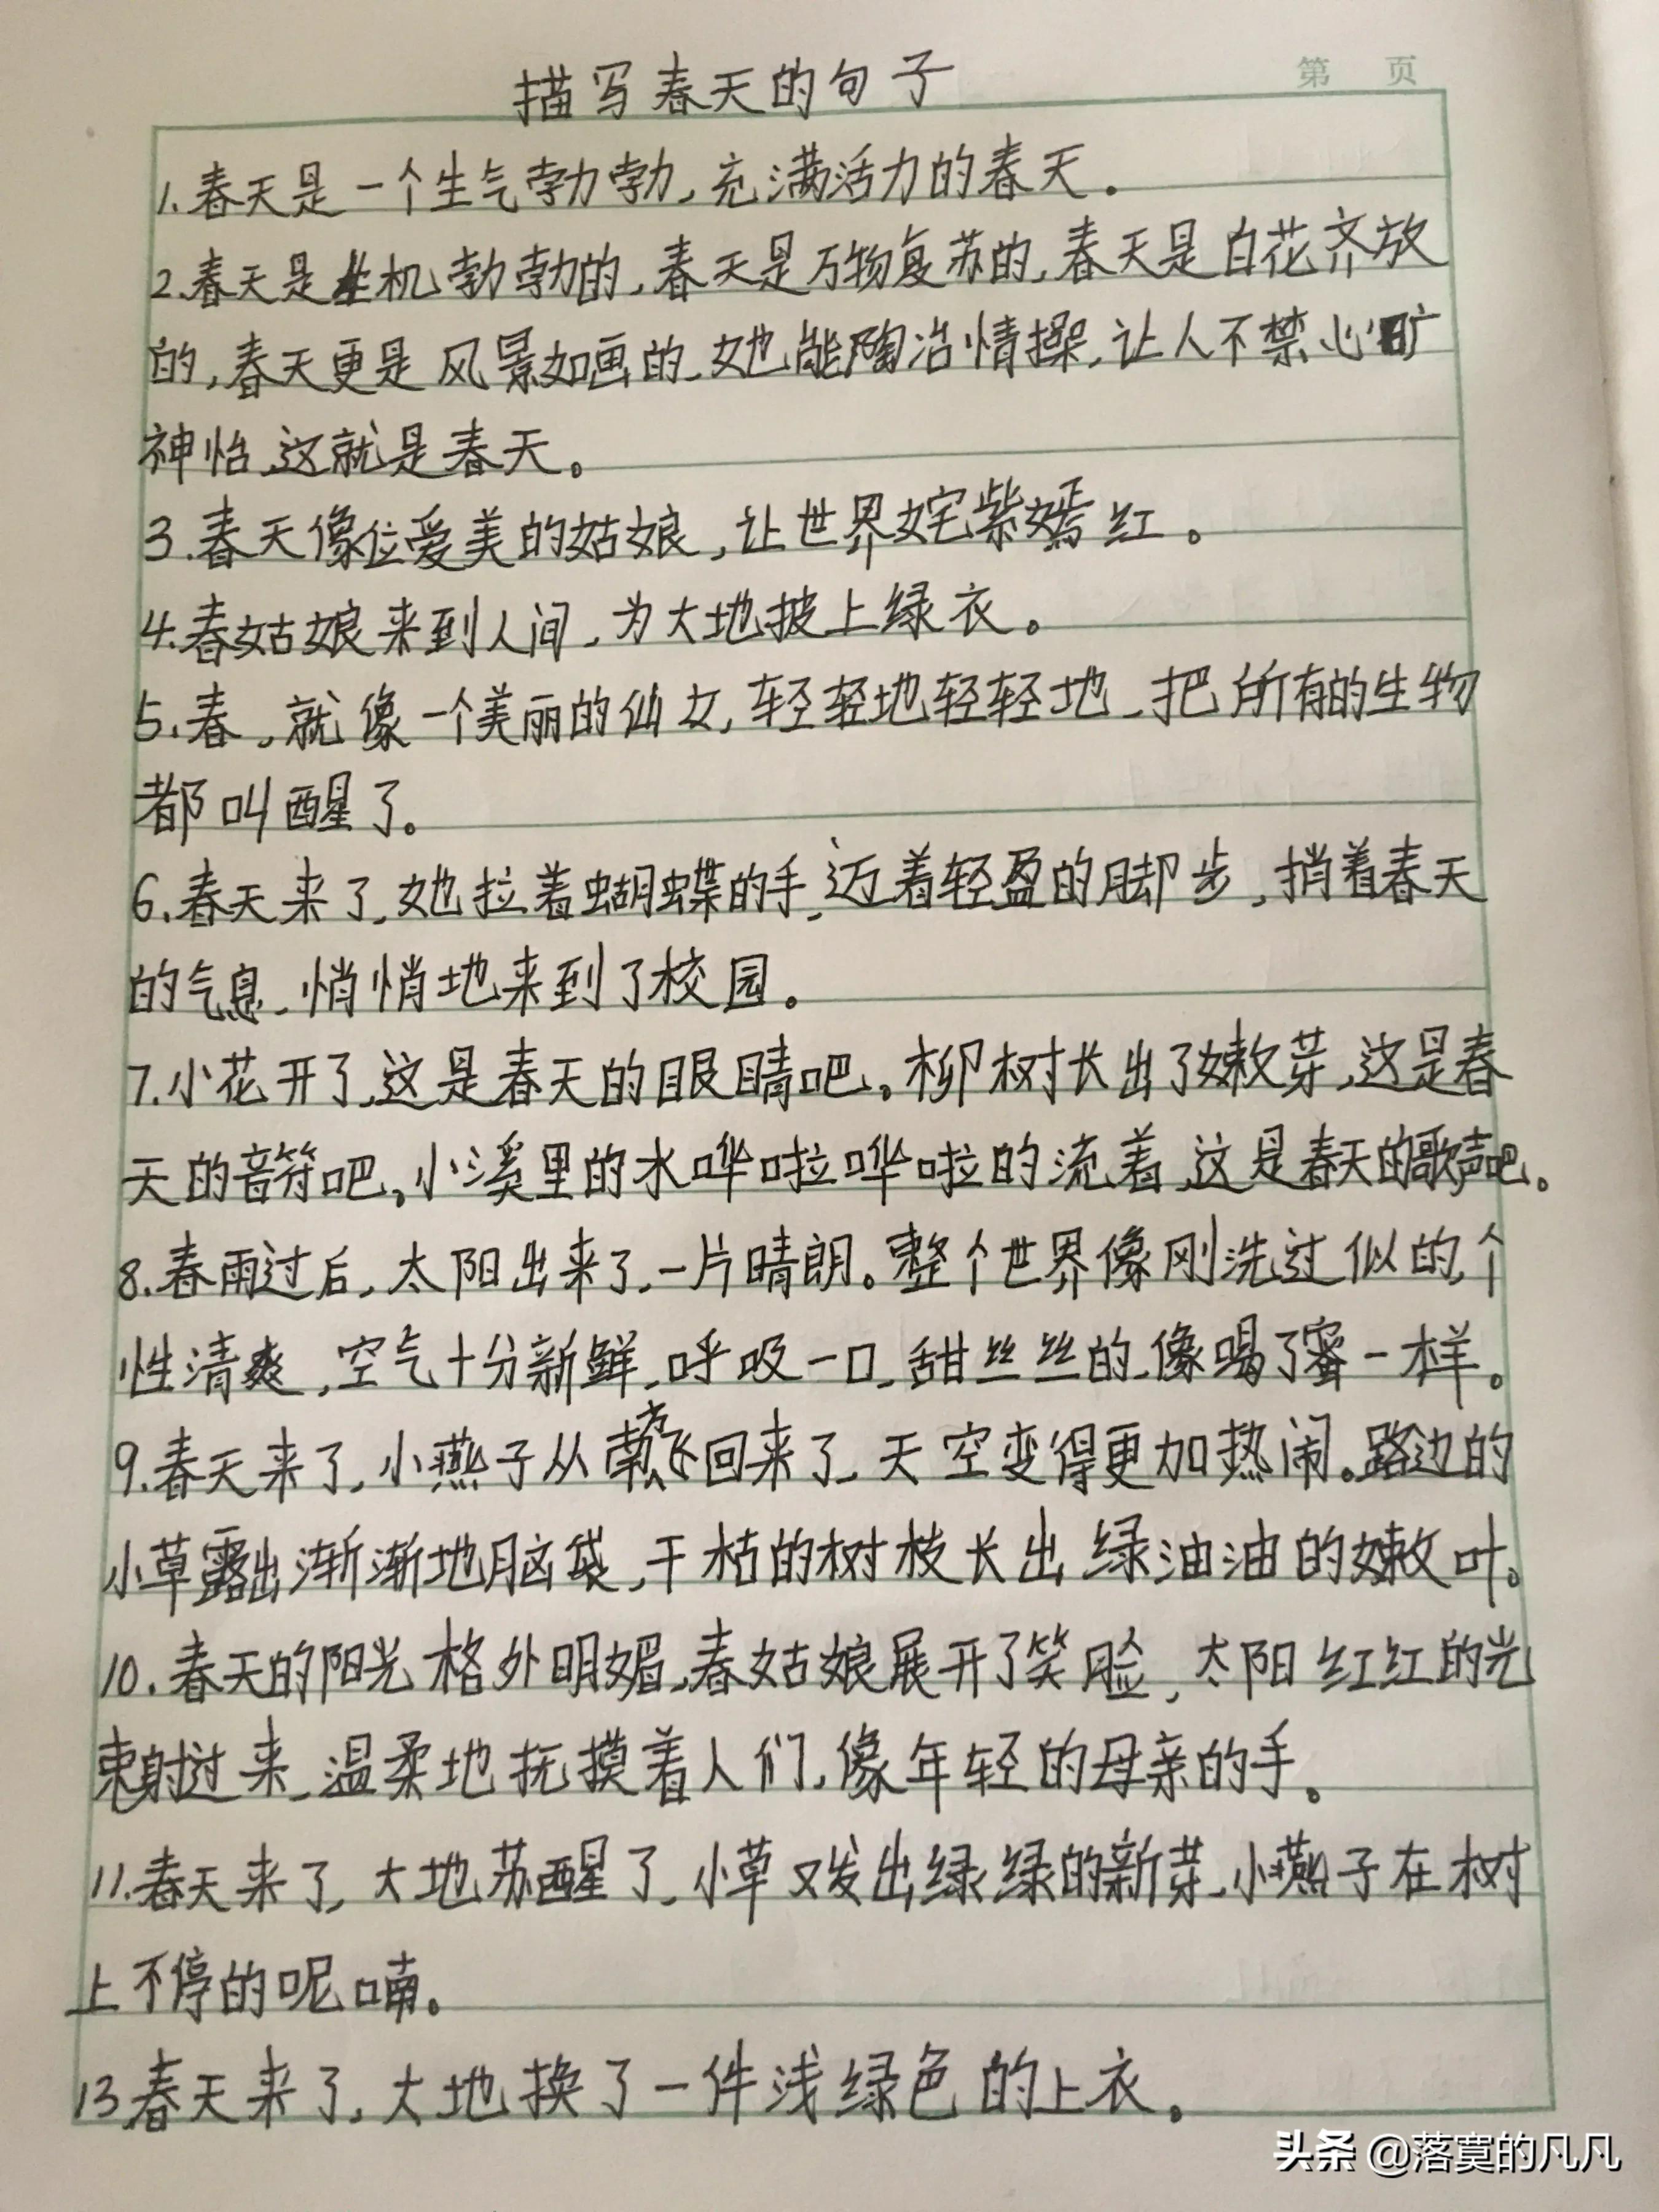 第 页
描写春天的句子
1.春天是一个生气勃勃,充满活力的春天。
2.春天是生机勃勃的,春天是万物复苏的,春天是白花齐放
的,春天更是风景如画的,她能陶冶情操,让人不禁心旷
神怡,这就是春天。
3.春天像位爱美的姑娘,让世界姹紫嫣红。
4.春姑娘来到人间,为大地披上绿衣。
5.春,就像一个美丽的仙女,轻轻地轻轻地,把所有的生物
都叫醒了。
6.春天来了,她拉着蝴蝶的手,迈着轻盈的脚步,捎着春天
的气息,悄悄地来到了校园。
7.小花开了,这是春天的眼睛吧。柳树长出了嫩芽,这是春
天的音符吧。小溪里的水哗啦哗啦的流着,这是春天的歌声吧。
8.春雨过后,太阳出来了,一片晴朗。整个世界像刚洗过似的,个
性清爽,空气十分新鲜,呼吸一口,甜丝丝的,像喝了蜜一样。
9.春天来了,小燕子从飞回来了,天空变得更加热闹。路边的
小草露出渐渐地脑袋,干枯的树枝长出绿油油的嫩叶。
10.春天的阳光格外明媚,春姑娘展开了笑脸,太阳红红的光
束射过来,温柔地抚摸着人们,像年轻的母亲的手。
11.春天来了,大地苏醒了,小草又发出绿绿的新芽,小燕子在树
上不停的呢喃。
13春天来了,大地换了一件浅绿色的上衣。
头条 @落寞的凡凡